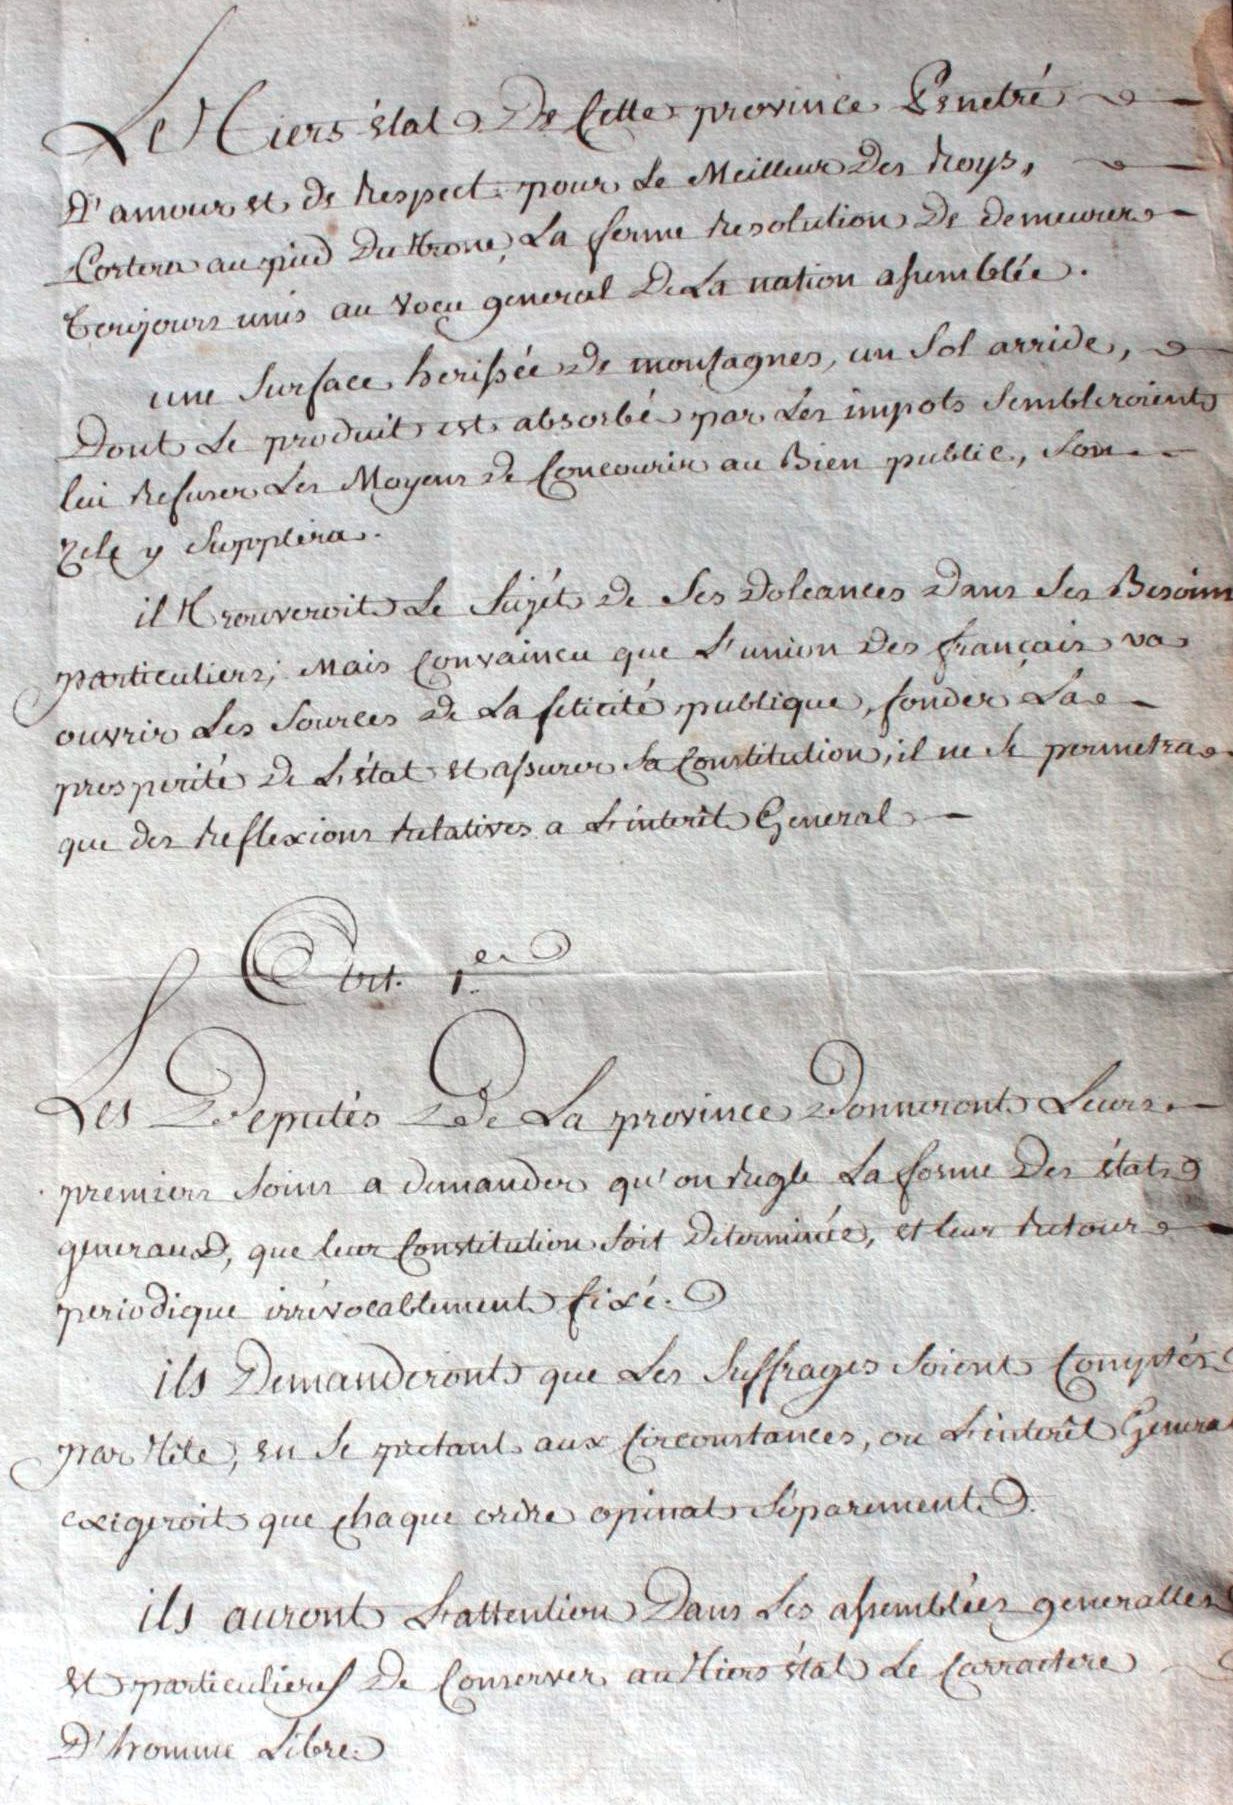 Le Tiers état De Cette province Penetré
D'amour et de Respect pour Le Meilleur Des Roys,
Portera au pied Du Trone, La ferme Resolution De demeurer
toujours unis au voeu general De La nation assemblée.
une Surface herissée De montagnes, un Sol arride,
Dont Le produit est absorbé par Les impots Sembleroient
lui Refuser Les Moyens de Concourir au Bien public, Son
Zele y Supplera.
il Trouveroit Le Sujét De Ses Doleances Dans Ses Besoins
particuliers; Mais Convaincu que L'union Des français va
ouvrir Les Sources De La felicité publique, fonder La
prosperité De L'état et assurer Sa Constitution, il ne Se permetra
que des Reflexions Relatives a L'interêt General
Art. 1.er
Les Deputés De La province Donneront Leurs
premiers Soins a demander qu'on Regle La forme Des états
generaux, que leur Constitution Soit Determinée, et leur Retour
periodique irrévocablement fixé.
ils Demanderont que Les Suffrages Soient Comptés
par Tête, en Se pretant aux Circonstances, ou L'interêt General
exigeroit que chaque ordre opinat Séparement.
ils auront L'attention Dans Les assemblées generalles
et particulieres De Conserver au Tiers état Le Carractere
D'homme Libre.